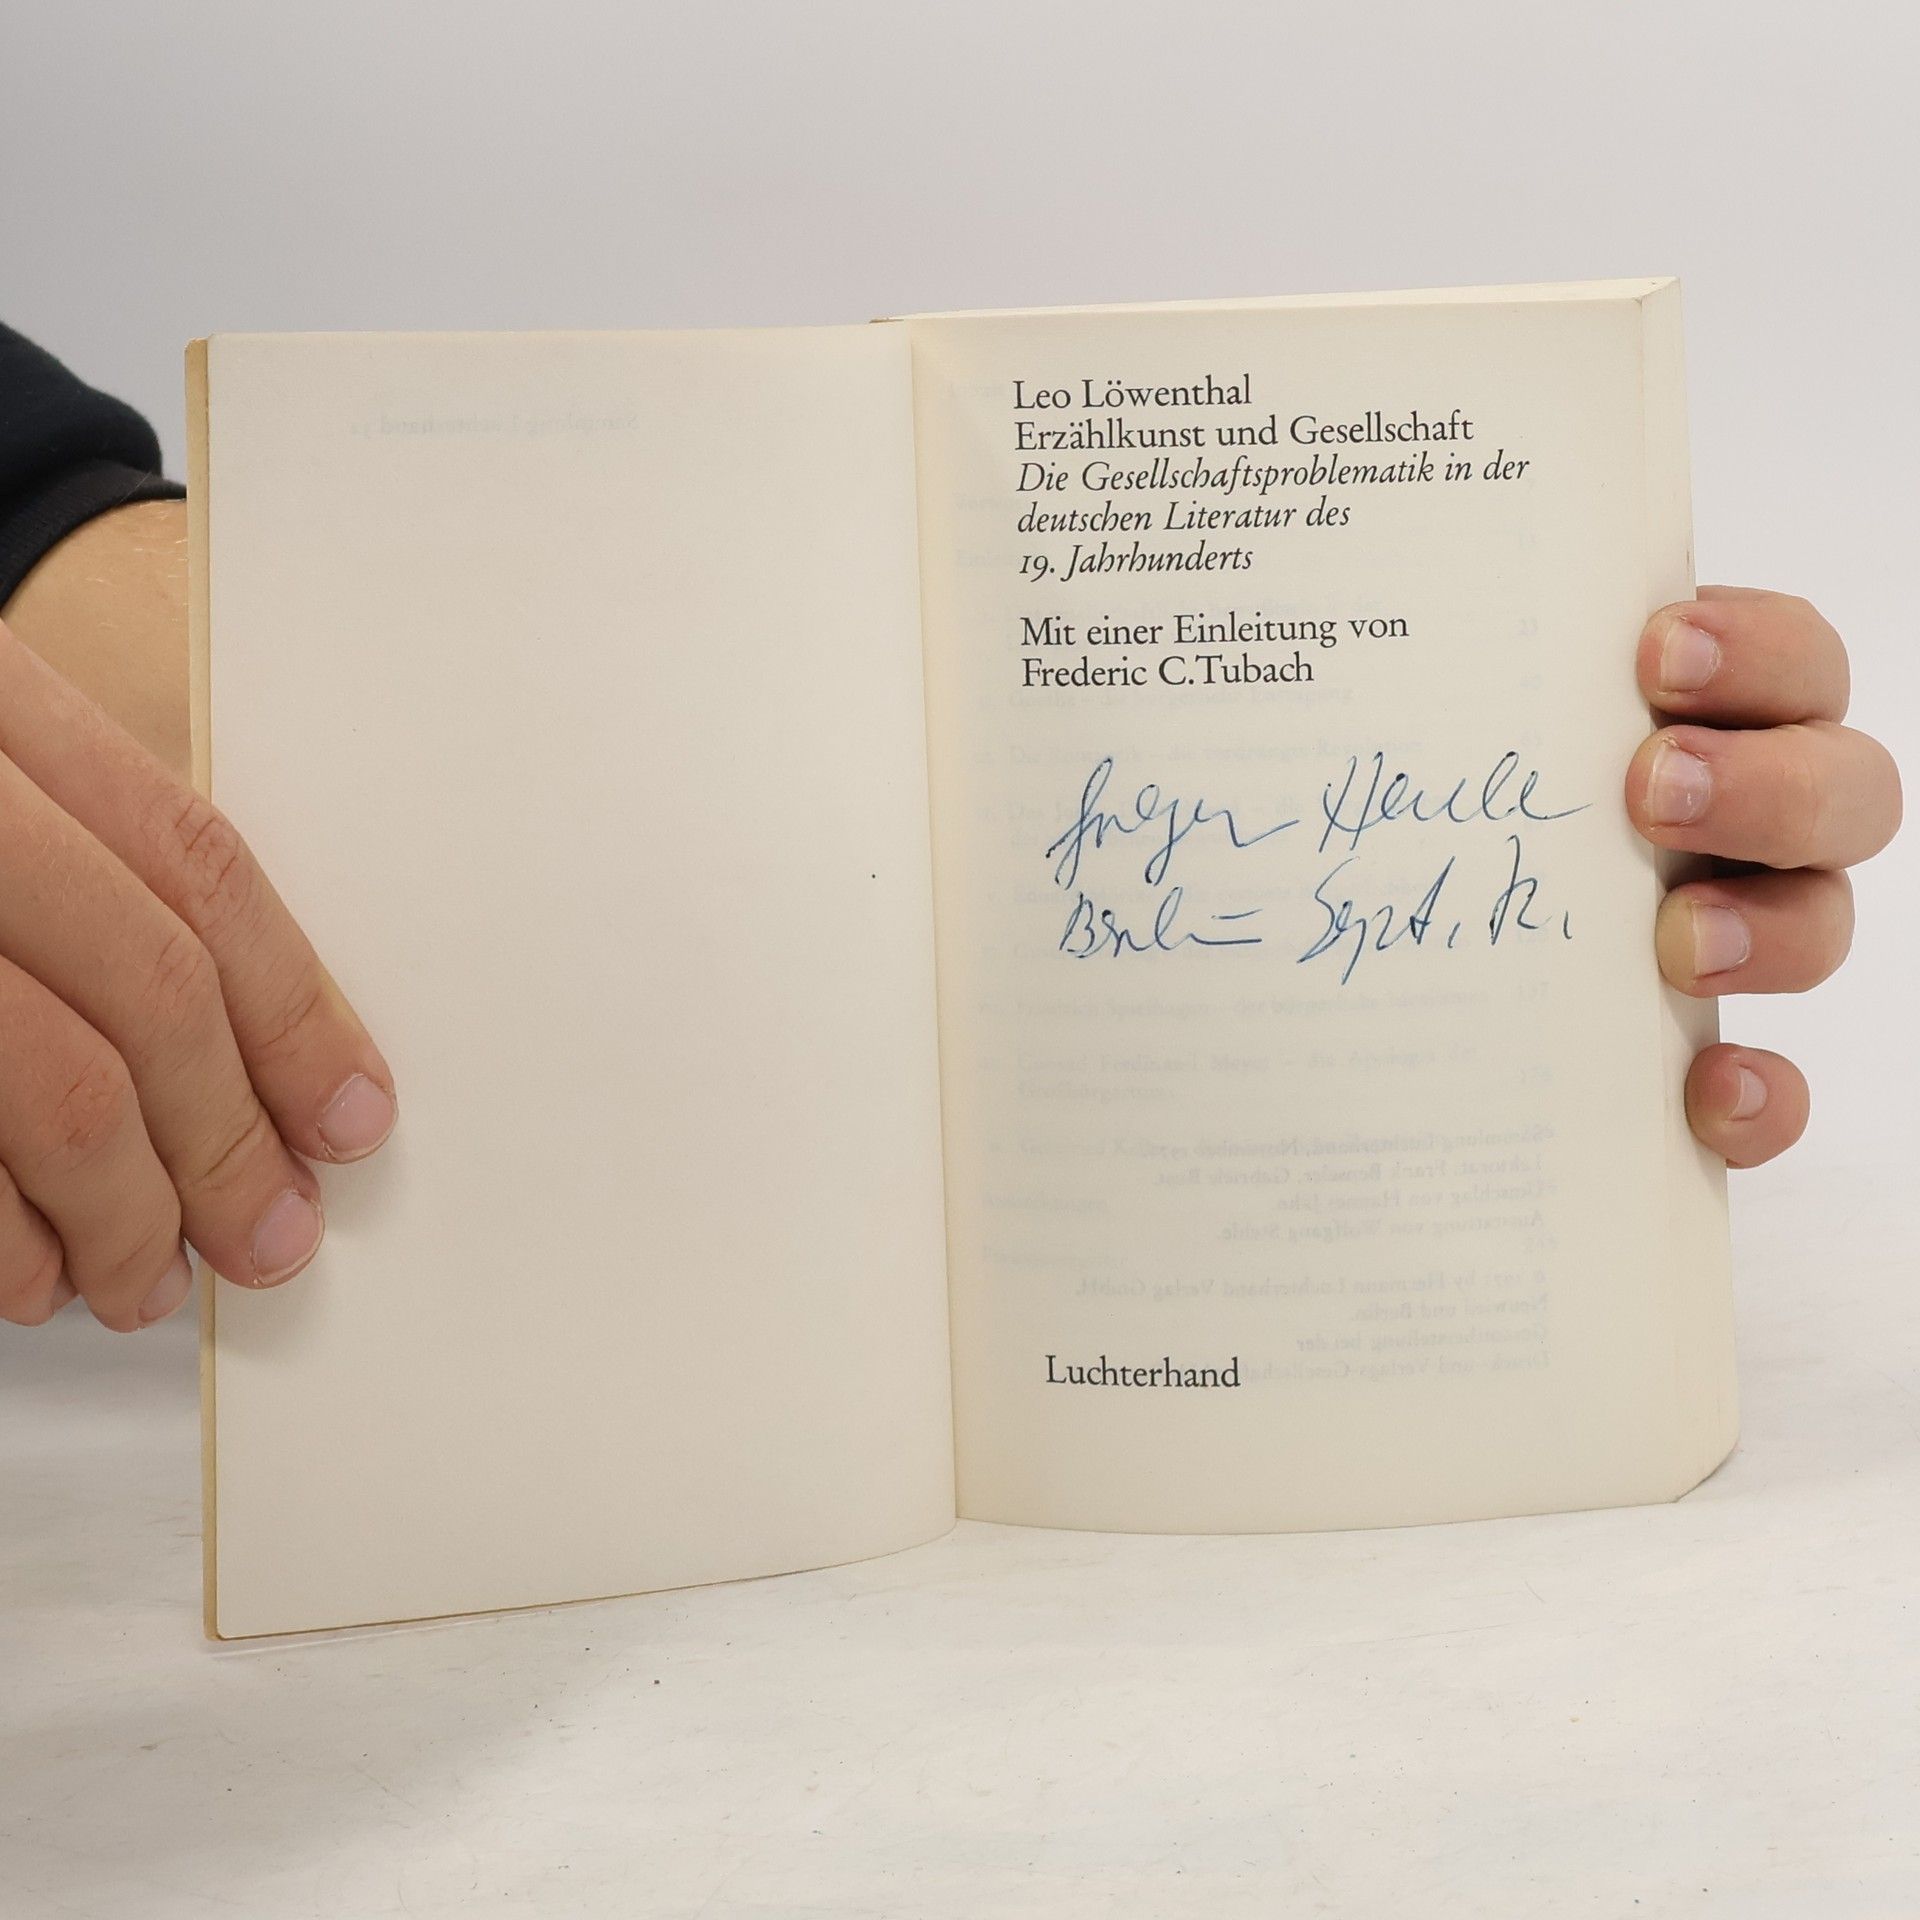 Leo Löwenthal
Erzählkunst und Gesellschaft
Die Gesellschaftsproblematik in der
deutschen Literatur des
19. Jahrhunderts
Mit einer Einleitung von
Frederic C. Tubach
Berlin Sept. 72.
Luchterhand